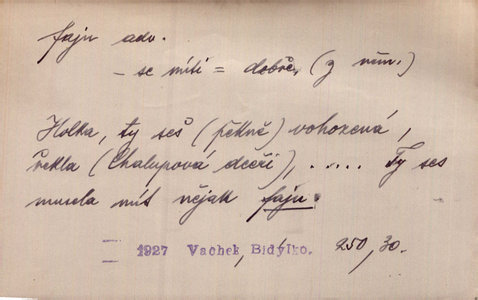 fajn adv.
– se míti = dobře, (z něm.)
Holka, ty seš (pěkně) vohozená,
řekla (Chalupová dceři), ..... Ty ses
musela mít nějak fajn.
1927 Vachek, Bidýlko. 250,30.